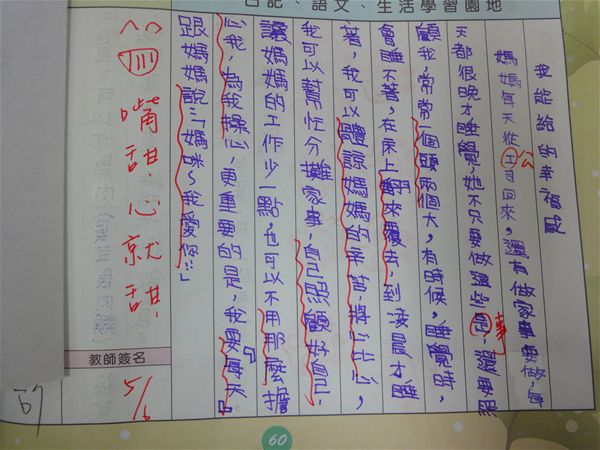 日記、語文、生活學習園地
我能給的幸福感
媽媽每天從工司回來,還有做家事要做,每
公
天都很晚才睡覺,她不只要做這些是,還要照
事
顧我,常常一個頭兩個大,有時候,睡覺時,
會睡不著,在床上翻來覆去,到凌晨才睡
著,我可以體諒媽媽的辛苦,將心比心,
我可以幫忙分攤家事,自己照顧好自己,
讓媽媽的工作少一點,也可以不用那麼擔
心我,為我操心,更重要的是,我要『每天』
跟媽媽說:「媽咪~我愛你!」
嘴甜心就甜
教師簽名
5/6
60